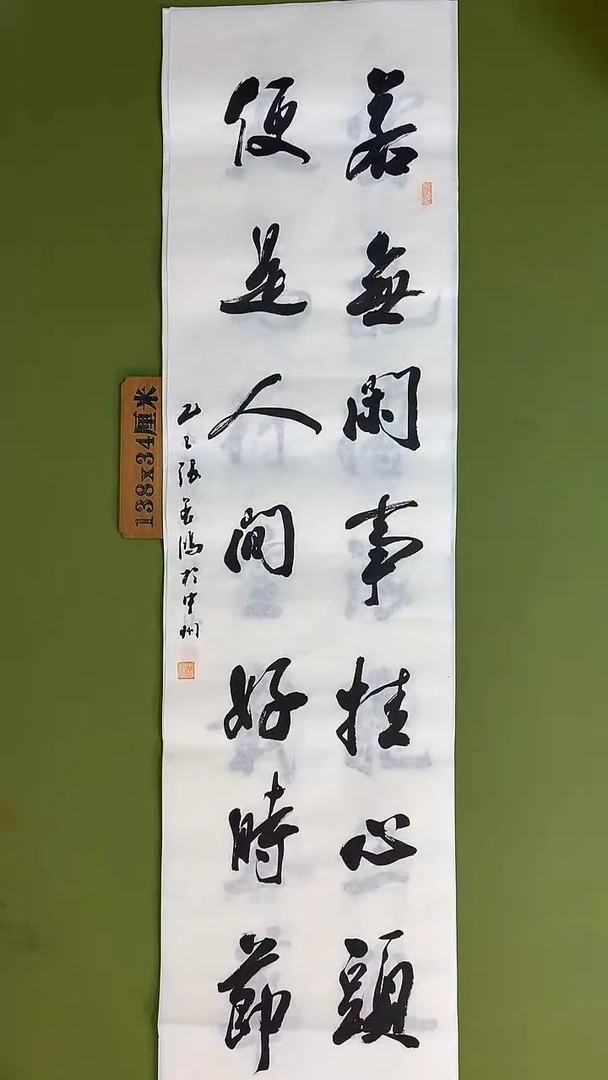 若無閑事挂心頭
便是人間好時節
乙巳張善鴻於中州
138x34厘米